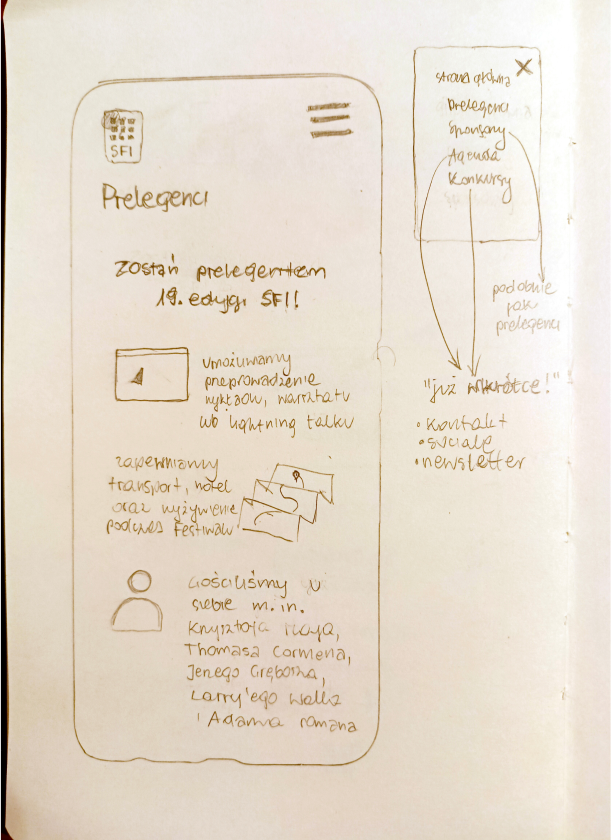 SFI
Prelegenci
Zostań prelegentem
19. edycji SFI!
umożliwiamy
przeprowadzenie
wykładów, warsztatu
lub lightning talku
zapewniamy
transport, hotel
oraz wyżywienie
podczas Festiwalu
Gościliśmy u
siebie m.in.
Krzysztofa
Thomasa Cormena,
Jerzego Grębosza,
Larry'ego Walla
i Adama romana
strona główna
Prelegenci
Sponsorzy
Agenda
Konkursy
podobnie
jak
prelegenci
"już wkrótce!"
• kontakt
• sociale
• newsletter